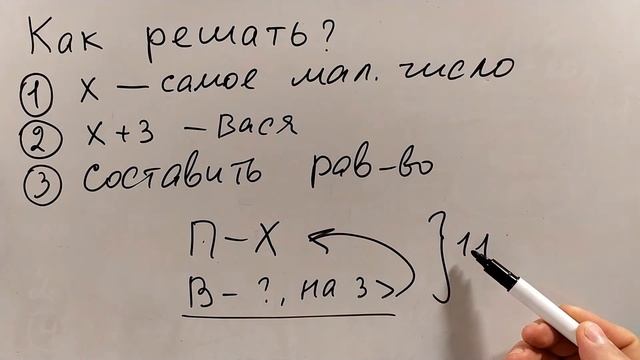 Как решать?
① x — самое мал. число
② x + 3 — Вася
③ составить рав-во
П – X
В – ?, на 3 > } 11